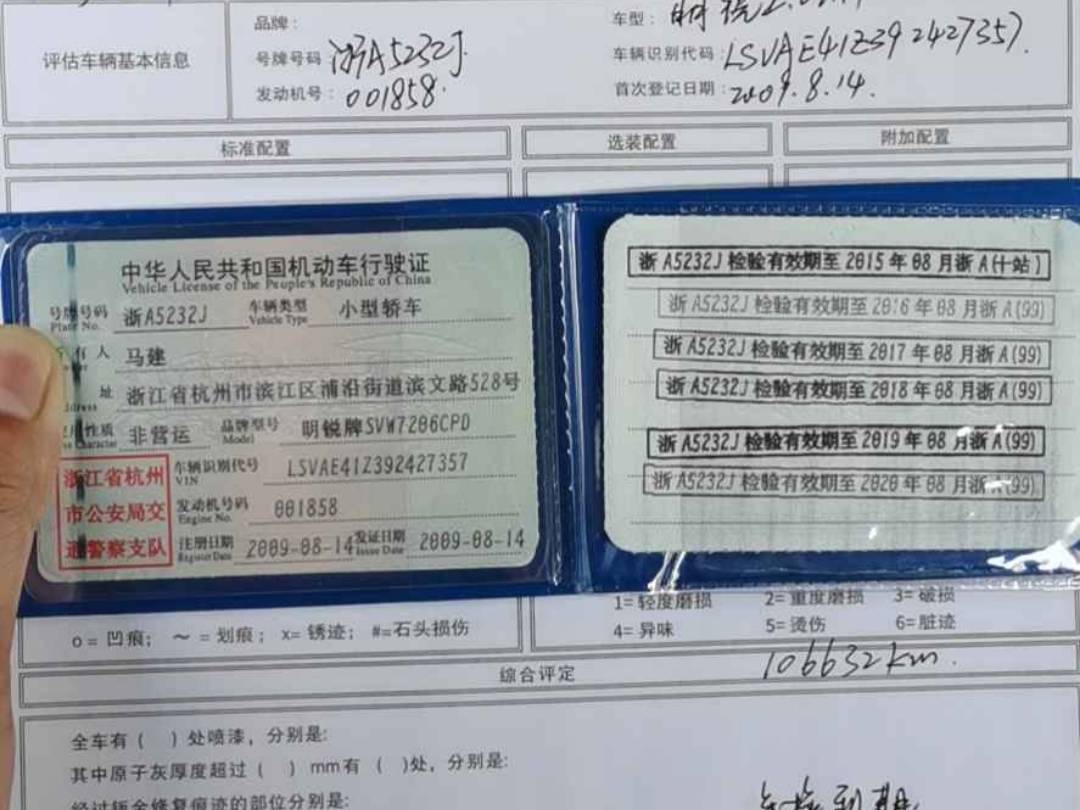 品牌：
车型：明锐2.0
评估车辆基本信息
号牌号码 浙A5232J
车辆识别代码：LSVAE41Z392427357
发动机号：001858
首次登记日期：2009.8.14.
标准配置
选装配置
附加配置
中华人民共和国机动车行驶证
Vehicle License of the People's Republic of China
号牌号码 浙A5232J 车辆类型 小型轿车
Plate No. Vehicle Type
有人 马建
址 浙江省杭州市滨江区浦沿街道滨文路528号
Address
使用性质 非营运 品牌型号 明锐牌SVW7206CPD
Character Model
浙江省杭州
市公安局交
通警察支队
车辆识别代号 LSVAE41Z392427357
VIN
发动机号码 001858
Engine No.
注册日期 2009-08-14 发证日期 2009-08-14
Register Date Issue Date
浙A5232J检验有效期至2015年08月浙A(十站)
浙A5232J检验有效期至2016年08月浙A(99)
浙A5232J检验有效期至2017年08月浙A(99)
浙A5232J检验有效期至2018年08月浙A(99)
浙A5232J检验有效期至2019年08月浙A(99)
浙A5232J检验有效期至2020年08月浙A(99)
o=凹痕；～=划痕；x=锈迹；#=石头损伤
1=轻度磨损 2=重度磨损 3=破损
4=异味 5=烫伤 6=脏迹
综合评定
106632km.
全车有（ ）处喷漆，分别是:
其中原子灰厚度超过（ ）mm有（ ）处，分别是:
经过钣金修复痕迹的部位分别是: